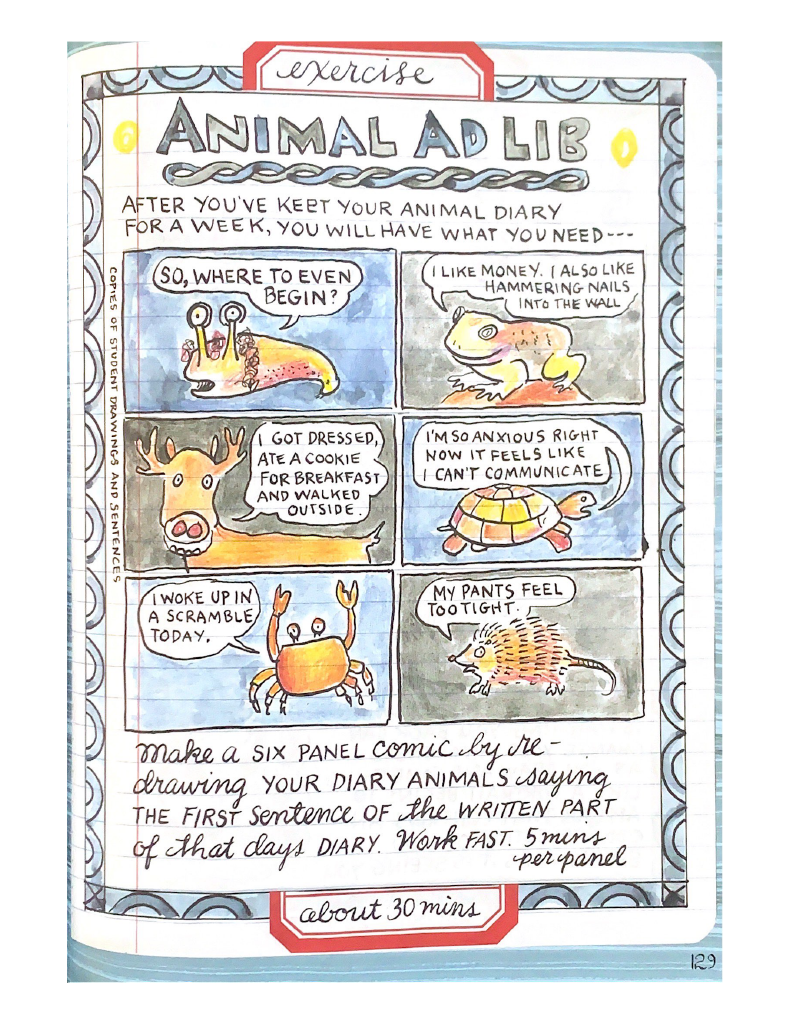 exercise
ANIMAL AD LIB
AFTER YOU'VE KEPT YOUR ANIMAL DIARY
FOR A WEEK, YOU WILL HAVE WHAT YOU NEED---
COPIES OF STUDENT DRAWINGS AND SENTENCES
SO, WHERE TO EVEN
BEGIN?
I LIKE MONEY. I ALSO LIKE
HAMMERING NAILS
INTO THE WALL
I GOT DRESSED,
ATE A COOKIE
FOR BREAKFAST
AND WALKED
OUTSIDE.
I'M SO ANXIOUS RIGHT
NOW IT FEELS LIKE
I CAN'T COMMUNICATE
I WOKE UP IN
A SCRAMBLE
TODAY.
MY PANTS FEEL
TOO TIGHT.
Make a SIX PANEL comic by re-
drawing YOUR DIARY ANIMALS saying
THE FIRST sentence OF the WRITTEN PART
of that days DIARY. Work FAST. 5 mins
per panel
about 30 mins
129